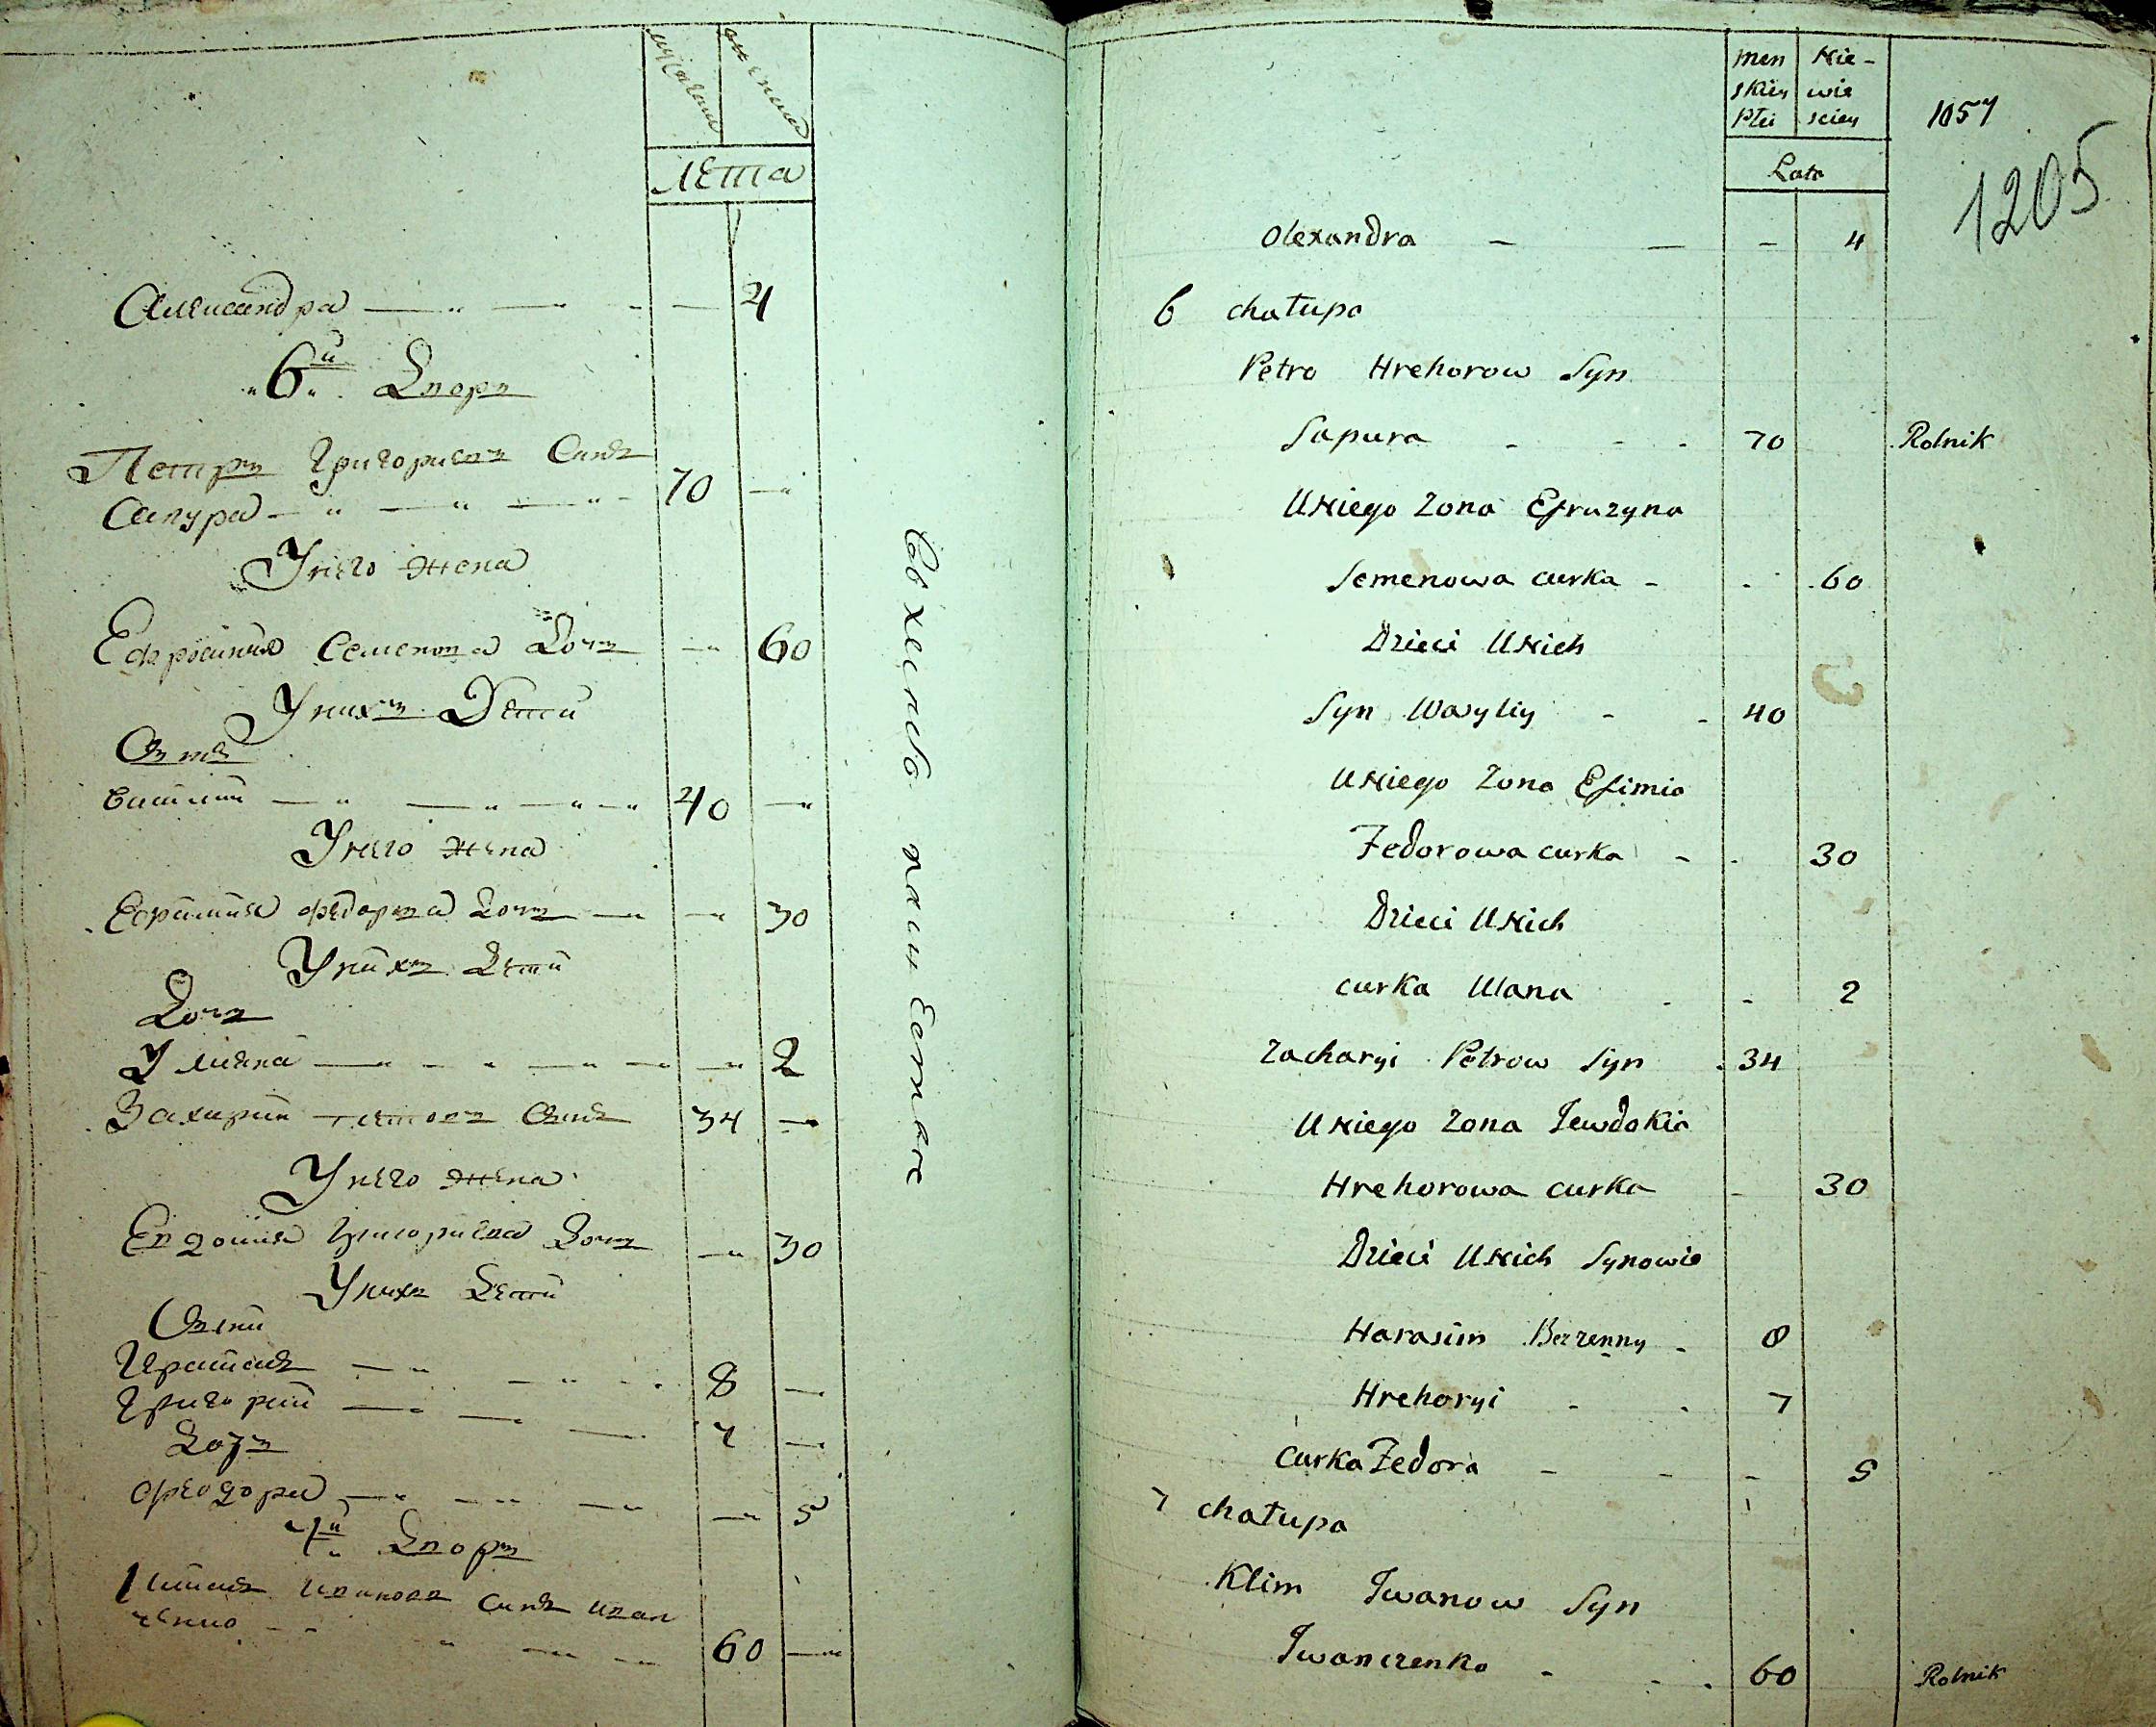 лета
Александра 4
6й Дворъ
Петръ Григориевъ Синъ
Сапура 70
У него жена
Ефросиния Семенова Дочь 60
У нихъ Дети
Синъ
Василий 40
У него жена
Ефимия Федорова Дочь 30
У нихъ Дети
Дочь
Улияна 2
Захарий Петровъ Синъ 34
У него жена
Евдокия Григориева Дочь 30
У нихъ Дети
Сини
Герасимъ 8
Григорий 7
Дочь
Феодора 5
7й Дворъ
Климъ Ивановъ Синъ Иван
ченко 60
men Nie-
skiey wie
Płci sciey
1057
Lata
1205
Olexandra - - - 4
6 chałupa
Petro Hrehorow Syn
Sapura - - - 70 Rolnik
U Niego Zona Efruzyna
Semenowa curka - - 60
Dzieci U Nich
Syn Wasyliy - - 40
U Niego Zona Efimia
Fedorowa curka - - 30
Dzieci U Nich
curka Ulana - - 2
Zacharyi Petrow Syn 34
U Niego Zona Jewdokia
Hrehorowa curka - 30
Dzieci U Nich Synowie
Harasim Bezzenny - 8
Hrehoryi - - 7
Curka Fedora - - - 5
7 chałupa
Klim Iwanow Syn
Iwanczenko - - 60 Rolnik